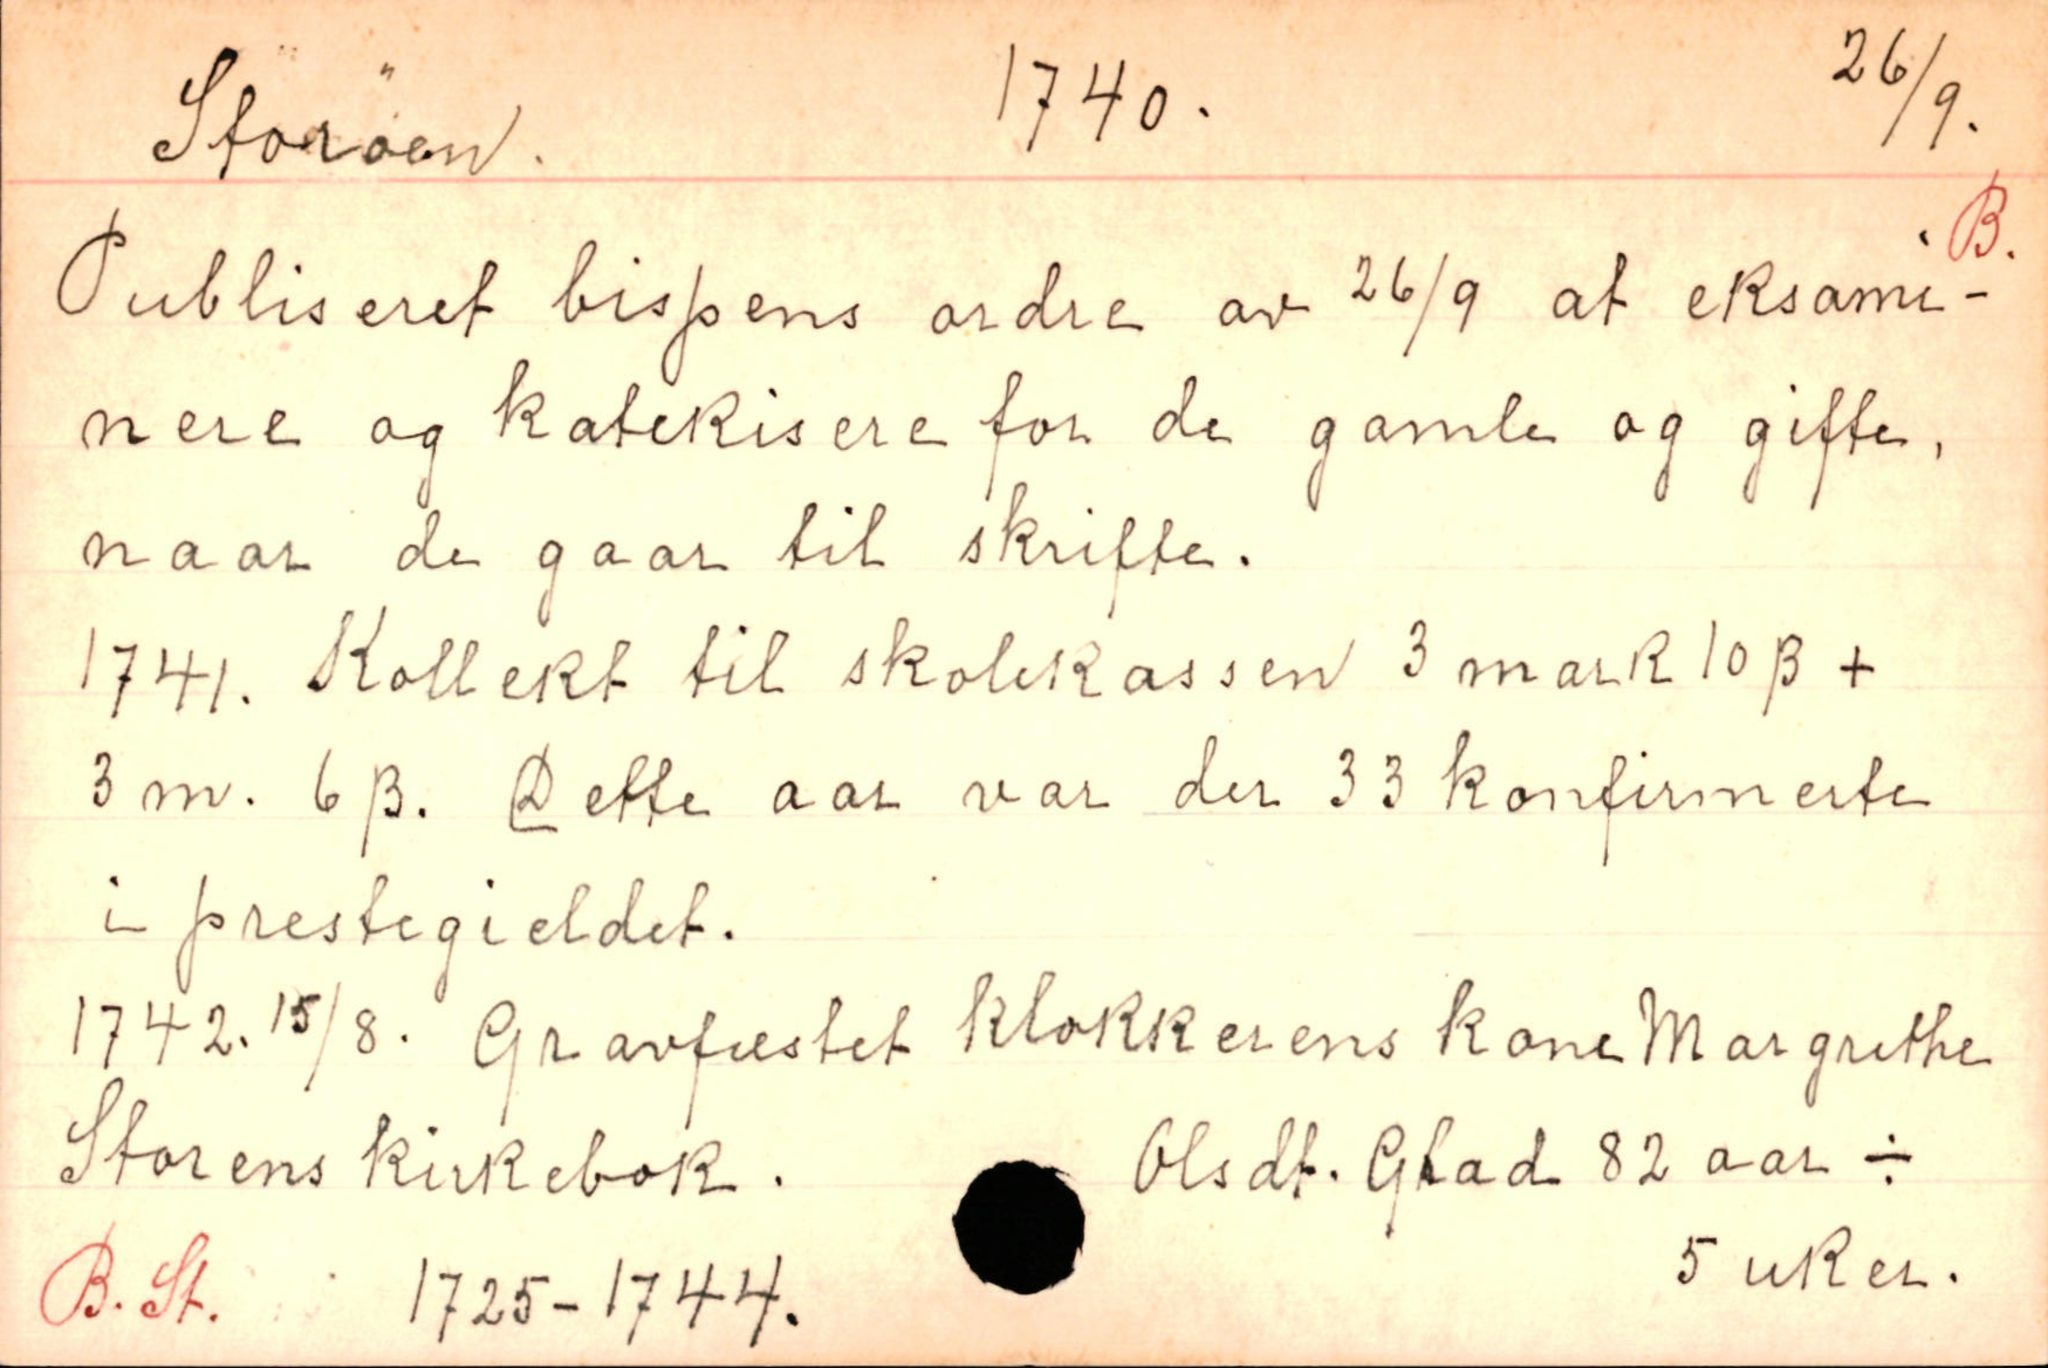 Störöen. 1740. 26/9.
B.
Publiseret bispens ordre av 26/9 at eksami-
nere og katekisere for de gamle og gifte,
naar de gaar til skrifte.
1741. Kollekt til skolekassen 3 mark 10 β +
3 m. 6 β. Dette aar var der 33 konfirmerte
i prestegieldet.
1742. 15/8. Gravfæstet klokkerens kone Margrethe
Storens kirkebok. Olsdt. Glad 82 aar ÷
B. St. 1725-1744. 5 uker.